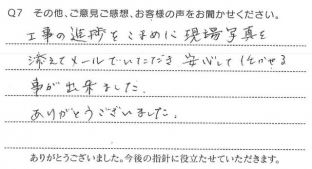 Q7 その他、ご意見ご感想、お客様の声をお聞かせください。
工事の進捗をこまめに現場写真を
添えてメールでいただき安心して任せる
事が出来ました。
ありがとうございました。
ありがとうございました。今後の指針に役立たせていただきます。